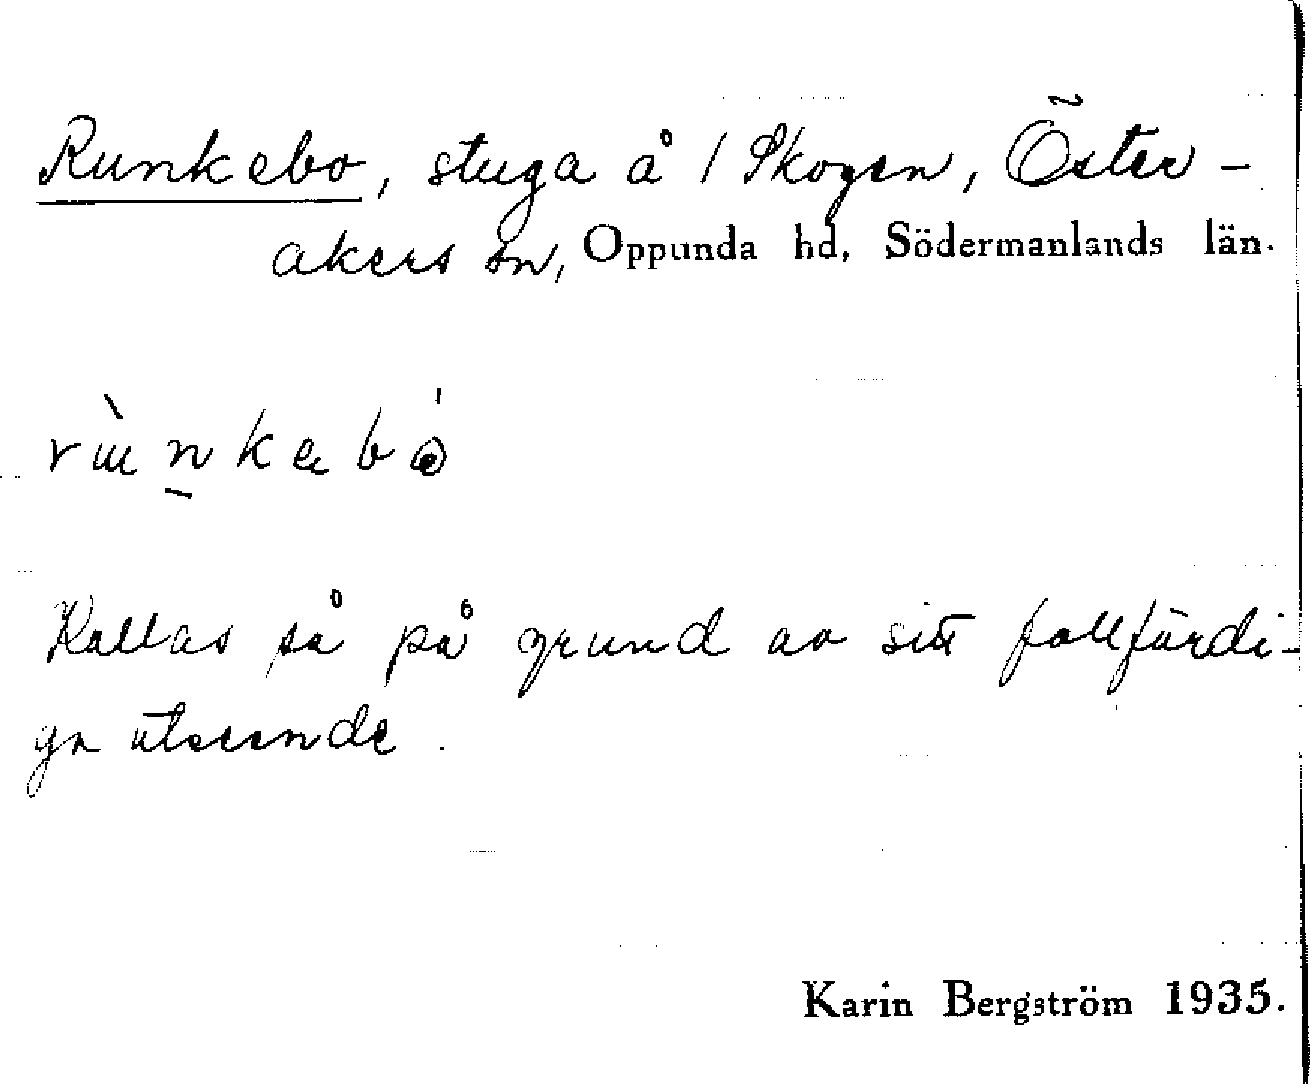 Runkebo, stuga å 1 Skogen, Öster-
akers sn, Oppunda hd, Södermanlands län.
Kallas så på grund av sitt fallfärdi-
ga utseende.
Karin Bergström 1935.